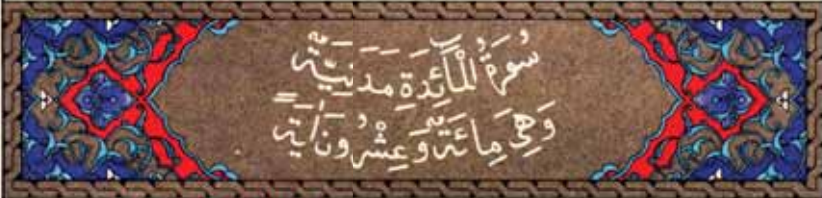 سُورَةُ الْمَائِدَةِ مَدَنِيَّةٌ
وَهِيَ مِائَةٌ وَعِشْرُونَ اٰيَةً